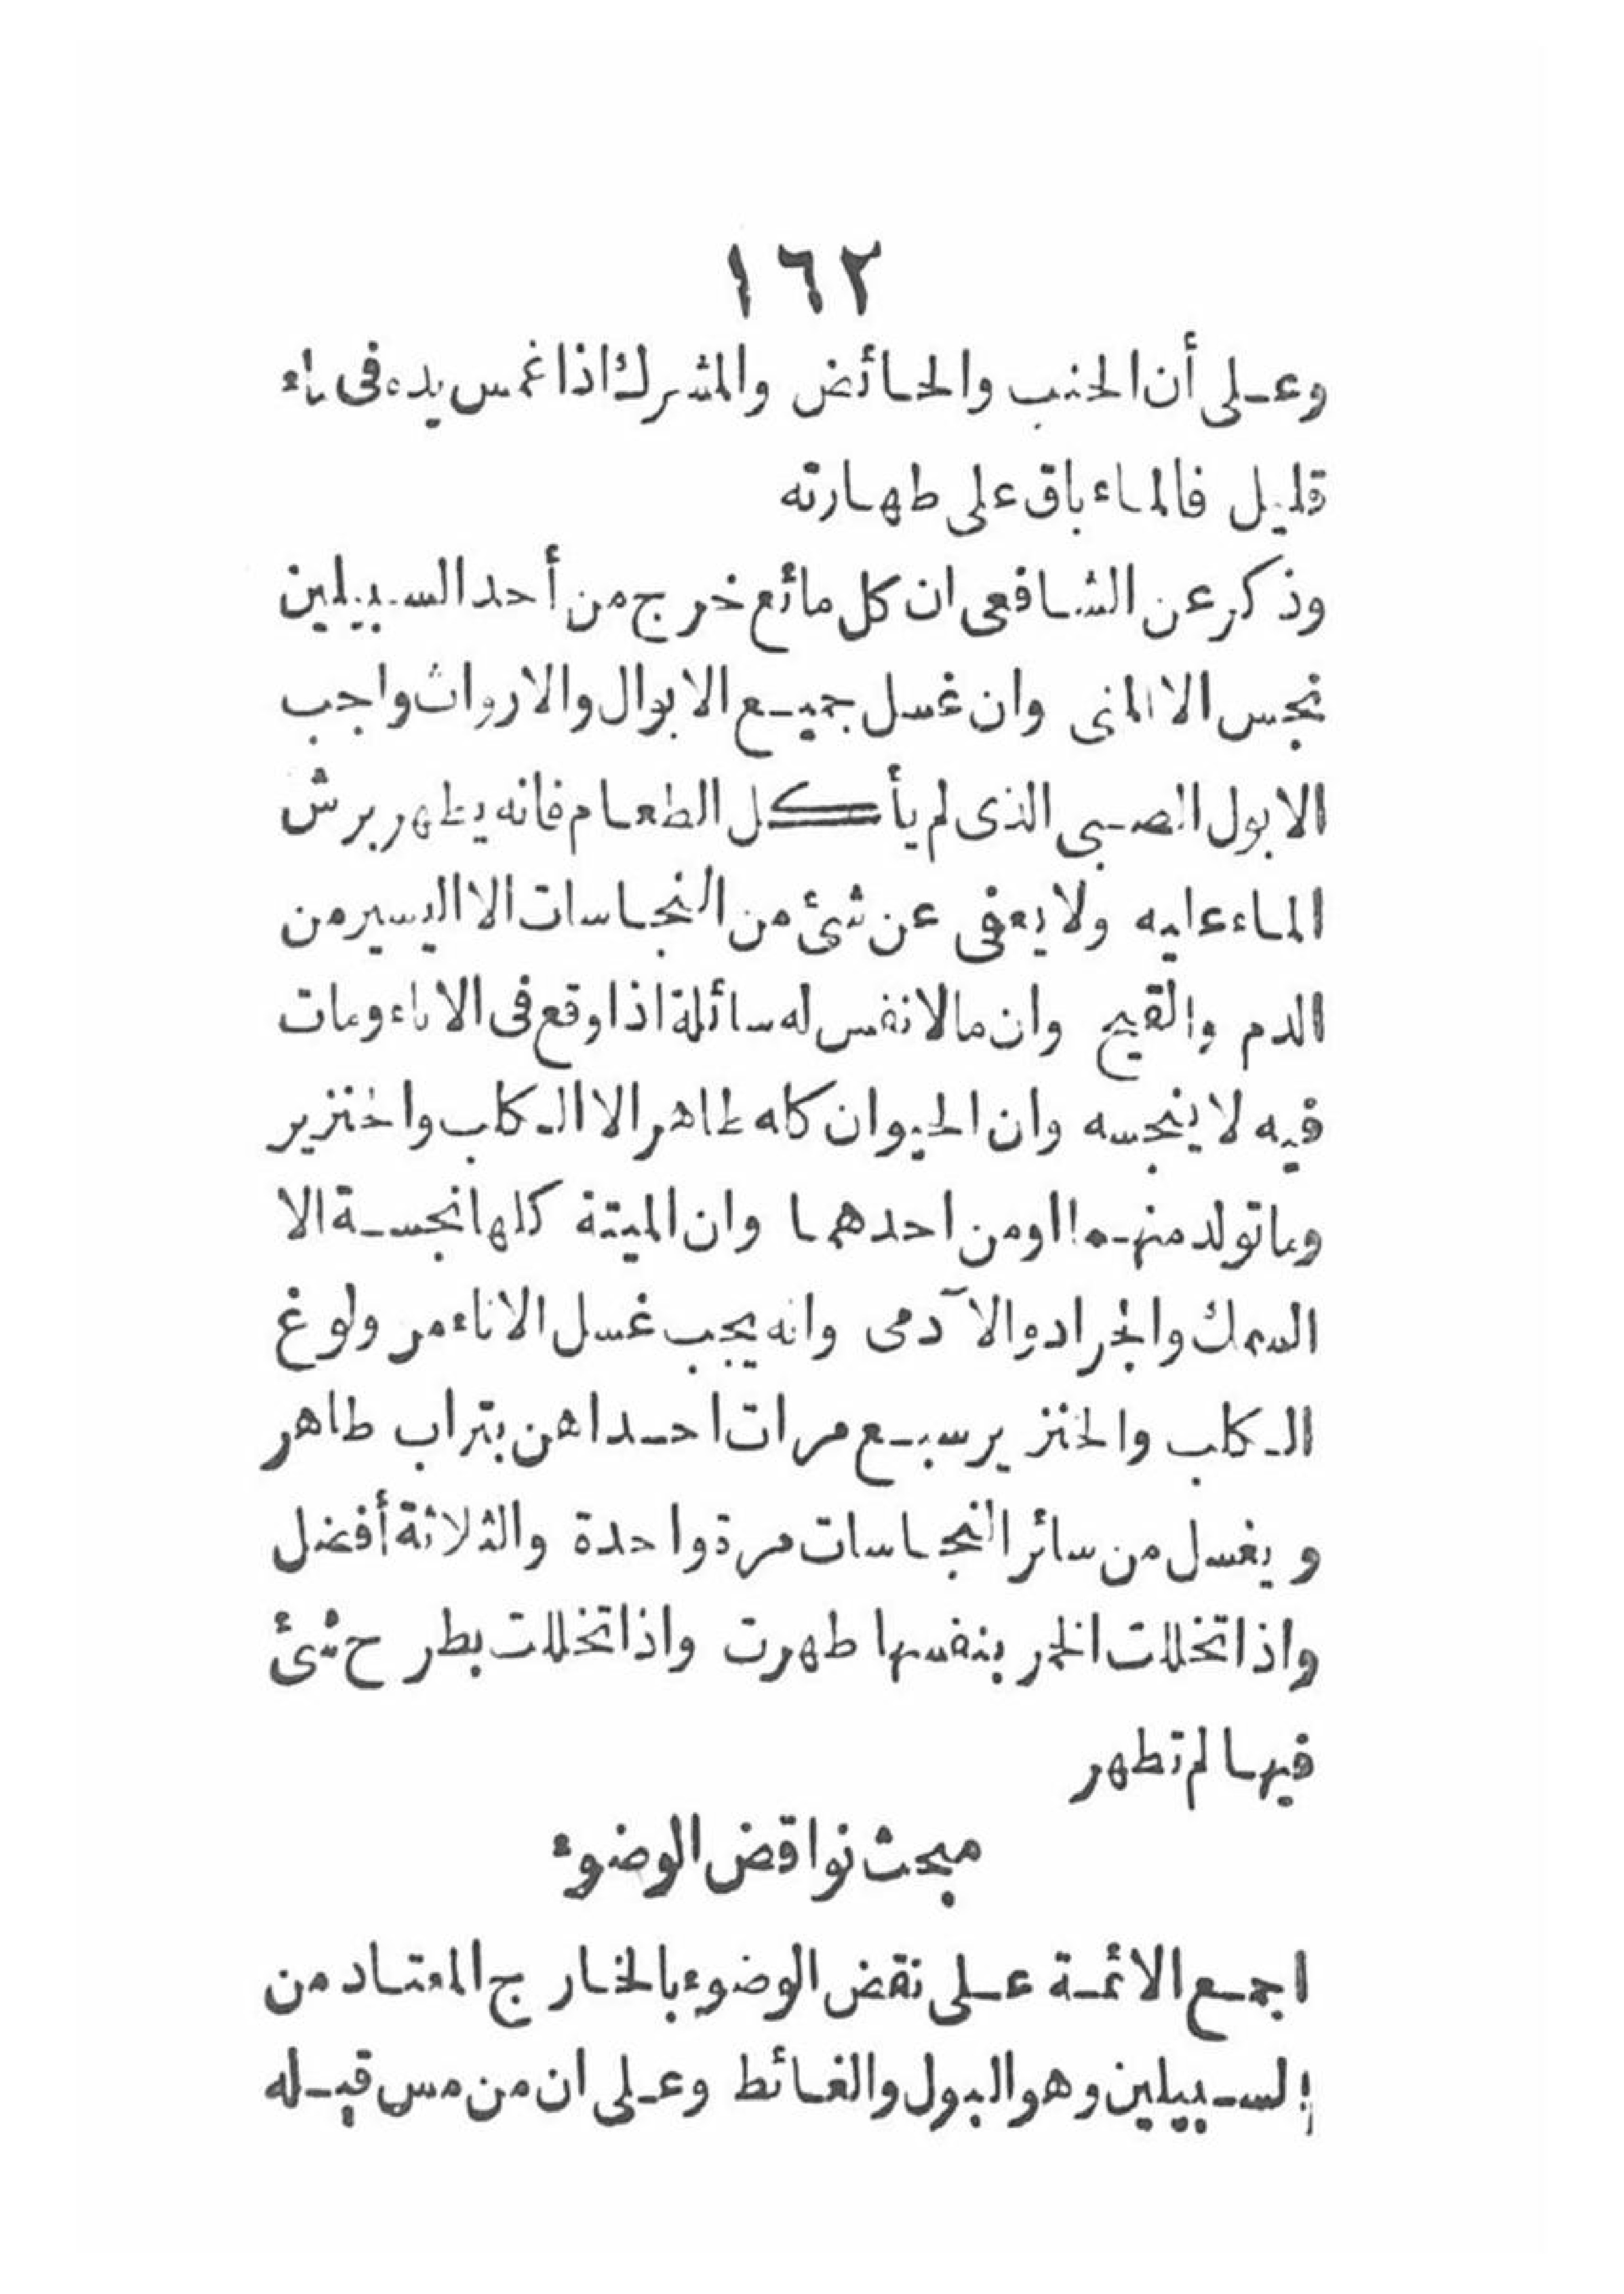 ١٦٢
وعلى أن الجنب والحائض والمشرك اذا غمس يده فى ماء
قليل فالماء باق على طهارته
وذكر عن الشافعى ان كل مائع خرج من أحد السبيلين
نجس الا المنى وان غسل جميع الابوال والارواث واجب
الا بول الصبى الذى لم يأكل الطعام فانه يطهر برش
الماء عليه ولا يعفى عن شئ من النجاسات الا اليسير من
الدم والقيح وان ما لا نفس له سائلة اذا وقع فى الاناء ومات
فيه لا ينجسه وان الحيوان كله طاهر الا الكلب والخنزير
وما تولد منهما او من احدهما وان الميتة كلها نجسة الا
السمك والجراد والآدمى وانه يجب غسل الاناء من ولوغ
الكلب والخنزير سبع مرات احداهن بتراب طاهر
ويغسل من سائر النجاسات مرة واحدة والثلاثة أفضل
واذا تخللت الخمر بنفسها طهرت واذا تخللت بطرح شئ
فيها لم تطهر
مبحث نواقض الوضوء
اجمع الائمة على نقض الوضوء بالخارج المعتاد من
السبيلين وهو البول والغائط وعلى ان من مس قبله